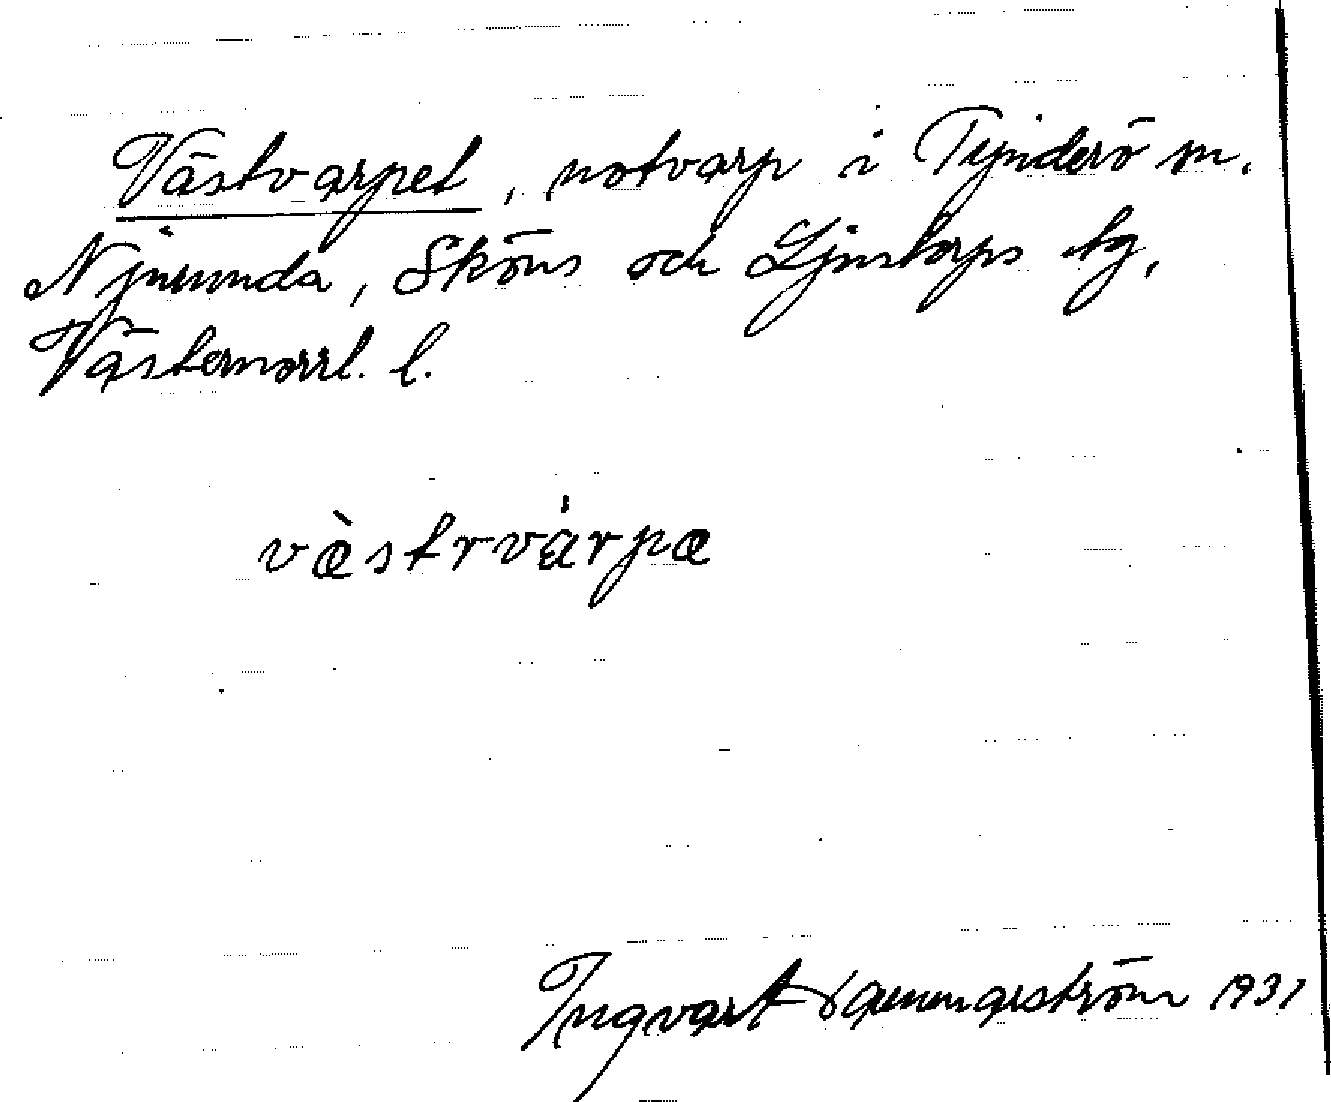 Västvarpet, notvarp i Tynderö sn.
Njurunda, Sköns och Ljustorps tg,
Västernorrl. l.
vàstrvárpæ
Ingvart 1931